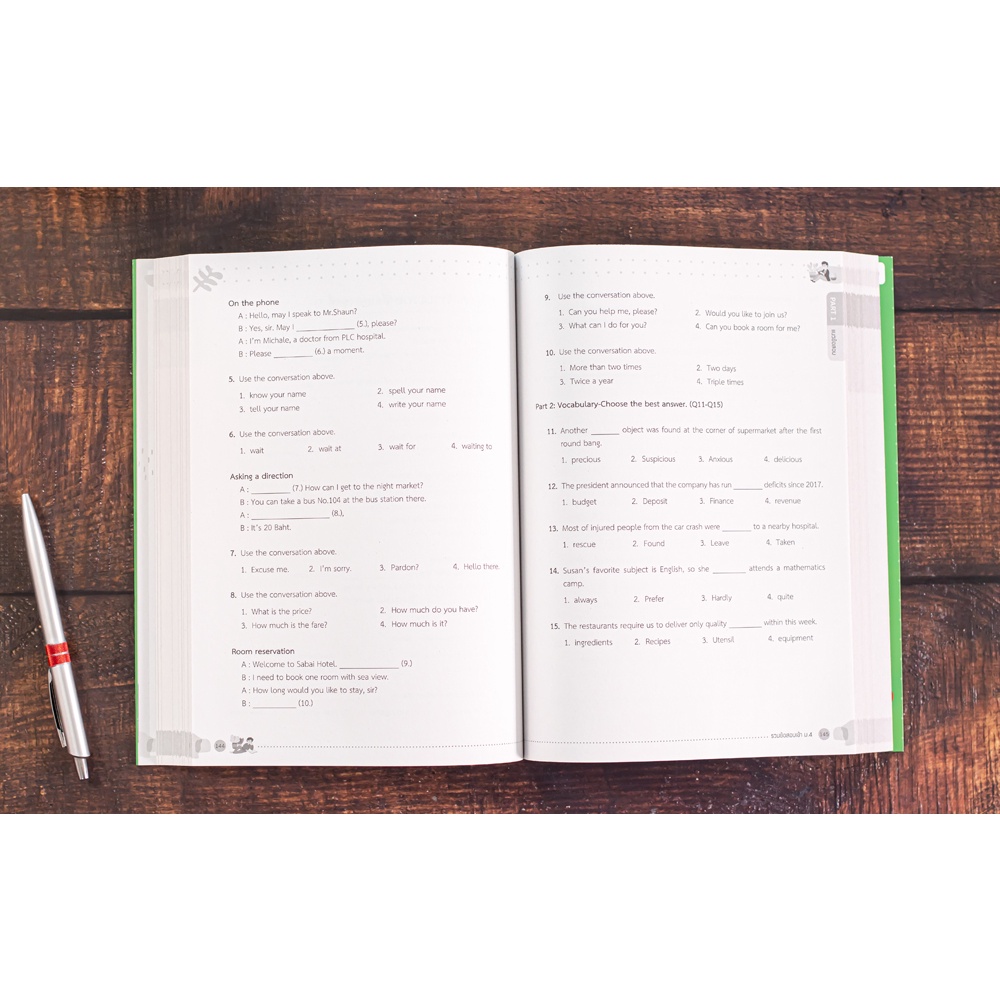 On the phone
A : Hello, may I speak to Mr.Shaun?
B : Yes, sir. May I ____________ (5.), please?
A : I'm Michale, a doctor from PLC hospital.
B : Please ________ (6.) a moment.
5. Use the conversation above.
1. know your name 2. spell your name
3. tell your name 4. write your name
6. Use the conversation above.
1. wait 2. wait at 3. wait for 4. waiting to
Asking a direction
A : ________ (7.) How can I get to the night market?
B : You can take a bus No.104 at the bus station there.
A : ________________ (8.),
B : It's 20 Baht.
7. Use the conversation above.
1. Excuse me. 2. I'm sorry. 3. Pardon? 4. Hello there.
8. Use the conversation above.
1. What is the price? 2. How much do you have?
3. How much is the fare? 4. How much is it?
Room reservation
A : Welcome to Sabai Hotel. ____________ (9.)
B : I need to book one room with sea view.
A : How long would you like to stay, sir?
B : _________ (10.)
148
9. Use the conversation above.
1. Can you help me, please? 2. Would you like to join us?
3. What can I do for you? 4. Can you book a room for me?
10. Use the conversation above.
1. More than two times 2. Two days
3. Twice a year 4. Triple times
Part 2: Vocabulary-Choose the best answer. (Q11-Q15)
11. Another ______ object was found at the corner of supermarket after the first
round bang.
1. precious 2. Suspicious 3. Anxious 4. delicious
12. The president announced that the company has run ______ deficits since 2017.
1. budget 2. Deposit 3. Finance 4. revenue
13. Most of injured people from the car crash were ______ to a nearby hospital.
1. rescue 2. Found 3. Leave 4. Taken
14. Susan's favorite subject is English, so she ______ attends a mathematics
camp.
1. always 2. Prefer 3. Hardly 4. quite
15. The restaurants require us to deliver only quality ______ within this week.
1. ingredients 2. Recipes 3. Utensil 4. equipment
รวมข้อสอบเข้า ม.4 149